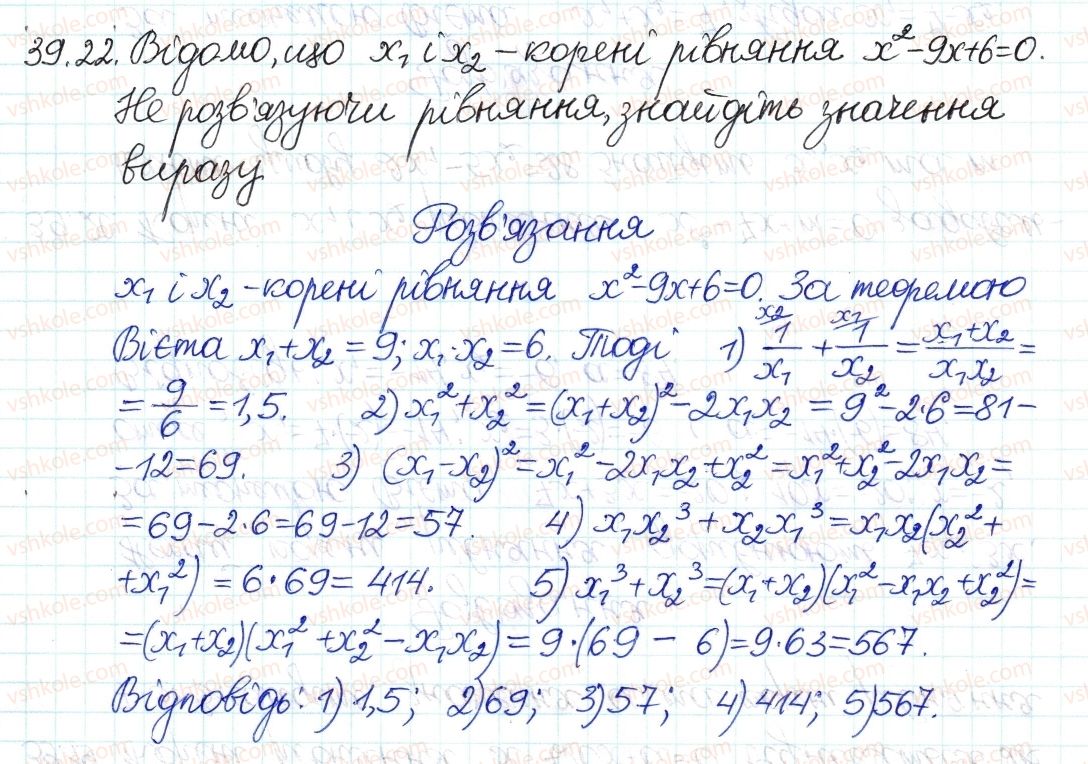 39.22. Відомо, що x₁ і x₂ – корені рівняння x²-9x+6=0.
Не розв'язуючи рівняння, знайдіть значення
виразу.
Розв'язання
x₁ і x₂ – корені рівняння x²-9x+6=0. За теоремою
Вієта x₁+x₂=9; x₁·x₂=6. Тоді 1) ˣ²⁄1/x₁ + ˣ¹⁄1/x₂ = (x₁+x₂)/(x₁x₂) =
= 9/6 = 1,5. 2) x₁²+x₂²=(x₁+x₂)²-2x₁x₂ = 9²-2·6=81-
-12=69. 3) (x₁-x₂)²=x₁²-2x₁x₂+x₂²=x₁²+x₂²-2x₁x₂=
=69-2·6=69-12=57. 4) x₁x₂³+x₂x₁³=x₁x₂(x₂²+
+x₁²) = 6·69= 414. 5) x₁³+x₂³=(x₁+x₂)(x₁²-x₁x₂+x₂²)=
=(x₁+x₂)(x₁²+x₂²-x₁x₂)=9·(69 - 6)=9·63=567.
Відповідь: 1) 1,5; 2) 69; 3) 57; 4) 414; 5) 567.